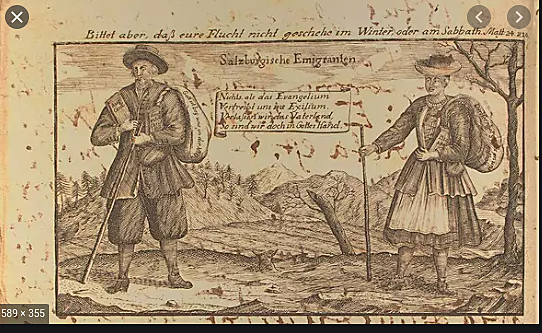 Bittet aber, daß eure Flucht nicht geschehe im Winter, oder am Sabbath. Matt. 24.
Salzburgische Emigranten.
Nichts, als das Evangelium
Vertreibt uns ins Exilium.
Verlassen wir das Vaterland,
So sind wir doch in Gottes Hand.
589 × 355